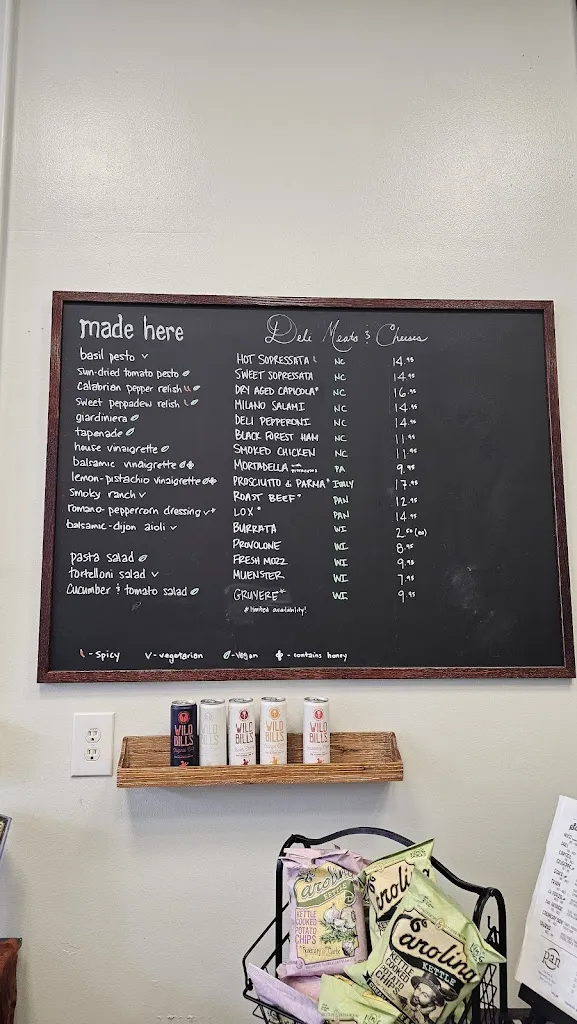 made here
basil pesto v
sun-dried tomato pesto
calabrian pepper relish
sweet peppadew relish
giardiniera
tapenade
house vinaigrette
balsamic vinaigrette
lemon-pistachio vinaigrette
smoky ranch v
romano-peppercorn dressing v
balsamic-dijon aioli v
pasta salad
tortelloni salad v
cucumber & tomato salad
Deli Meats & Cheeses
HOT SOPRESSATA NC 14.95
SWEET SOPRESSATA NC 14.95
DRY AGED CAPICOLA* NC 16.95
MILANO SALAMI NC 14.95
DELI PEPPERONI NC 14.95
BLACK FOREST HAM NC 11.95
SMOKED CHICKEN NC 11.95
MORTADELLA PA 9.95
PROSCIUTTO di PARMA* ITALY 17.95
ROAST BEEF* PAN 12.95
LOX* PAN 14.95
BURRATA WI 2.60 (ea)
PROVOLONE WI 8.95
FRESH MOZZ WI 9.95
MUENSTER WI 7.95
GRUYERE* WI 9.95
* limited availability!
- spicy v- vegetarian - vegan - contains honey
WILD BILL'S
WILD BILL'S
WILD BILL'S
WILD BILL'S
WILD BILL'S
Carolina
KETTLE
KETTLE COOKED POTATO CHIPS
Carolina
Carolina
KETTLE
KETTLE COOKED POTATO CHIPS
pan